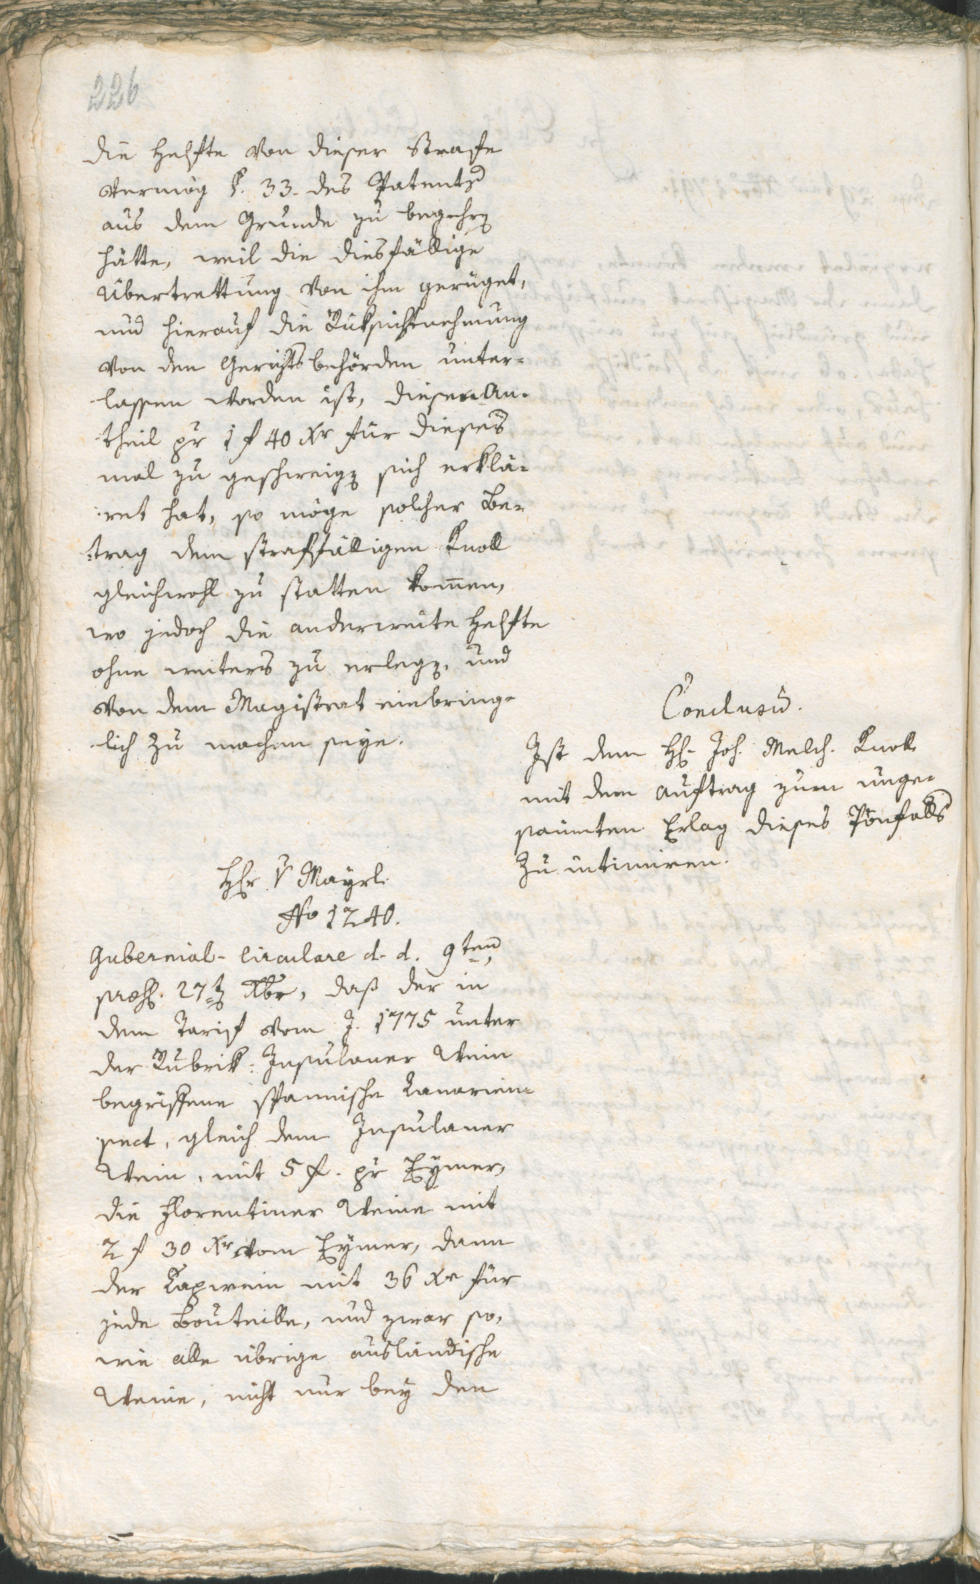 226
die Helfte von dieser Strafe
vermög §. 33. des Patents
aus dem Grunde zu begehrn
hätte, weil die diesfällige
Übertrettung von ihm gerüget,
und hierauf die Rüksichtnehmung
von den Gerichtsbehörden unter-
lassen worden ist, diesen An-
theil pr 1 f 40 Xr für dieses
mal zu geschweign sich erklä-
ret hat, so möge solcher Be-
trag dem straffälligen Knoll
gleichwohl zu statten kom̄en,
wo jedoch die anderweite Helfte
ohne weiters zu erlegn, und
von dem Magistrat einbring-
lich zu machen seye.
Conclusū.
Ist dem H. Joh. Melch. Knoll
mit dem Auftrag zum unge-
säumten Erlag dieses Pönfalls
zu intimiren.
Hr v Mayrl.
No 1240.
Gubernial-Circulare d. d. 9ten
praes. 27tn Xbr, daß der in
dem Tarif vom J. 1775 unter
der Rubrik: Insulaner Wein
begriffene spannische Kanarien
sect, gleich dem Insulaner
Wein, mit 5 f. pr Eymer,
die Florentiner Weine mit
2 f 30 Xr vom Eymer, dann
der Kapwein mit 36 Xr für
jede Bouteille, und zwar so,
wie alle übrige ausländische
Weine, nicht nur bey den